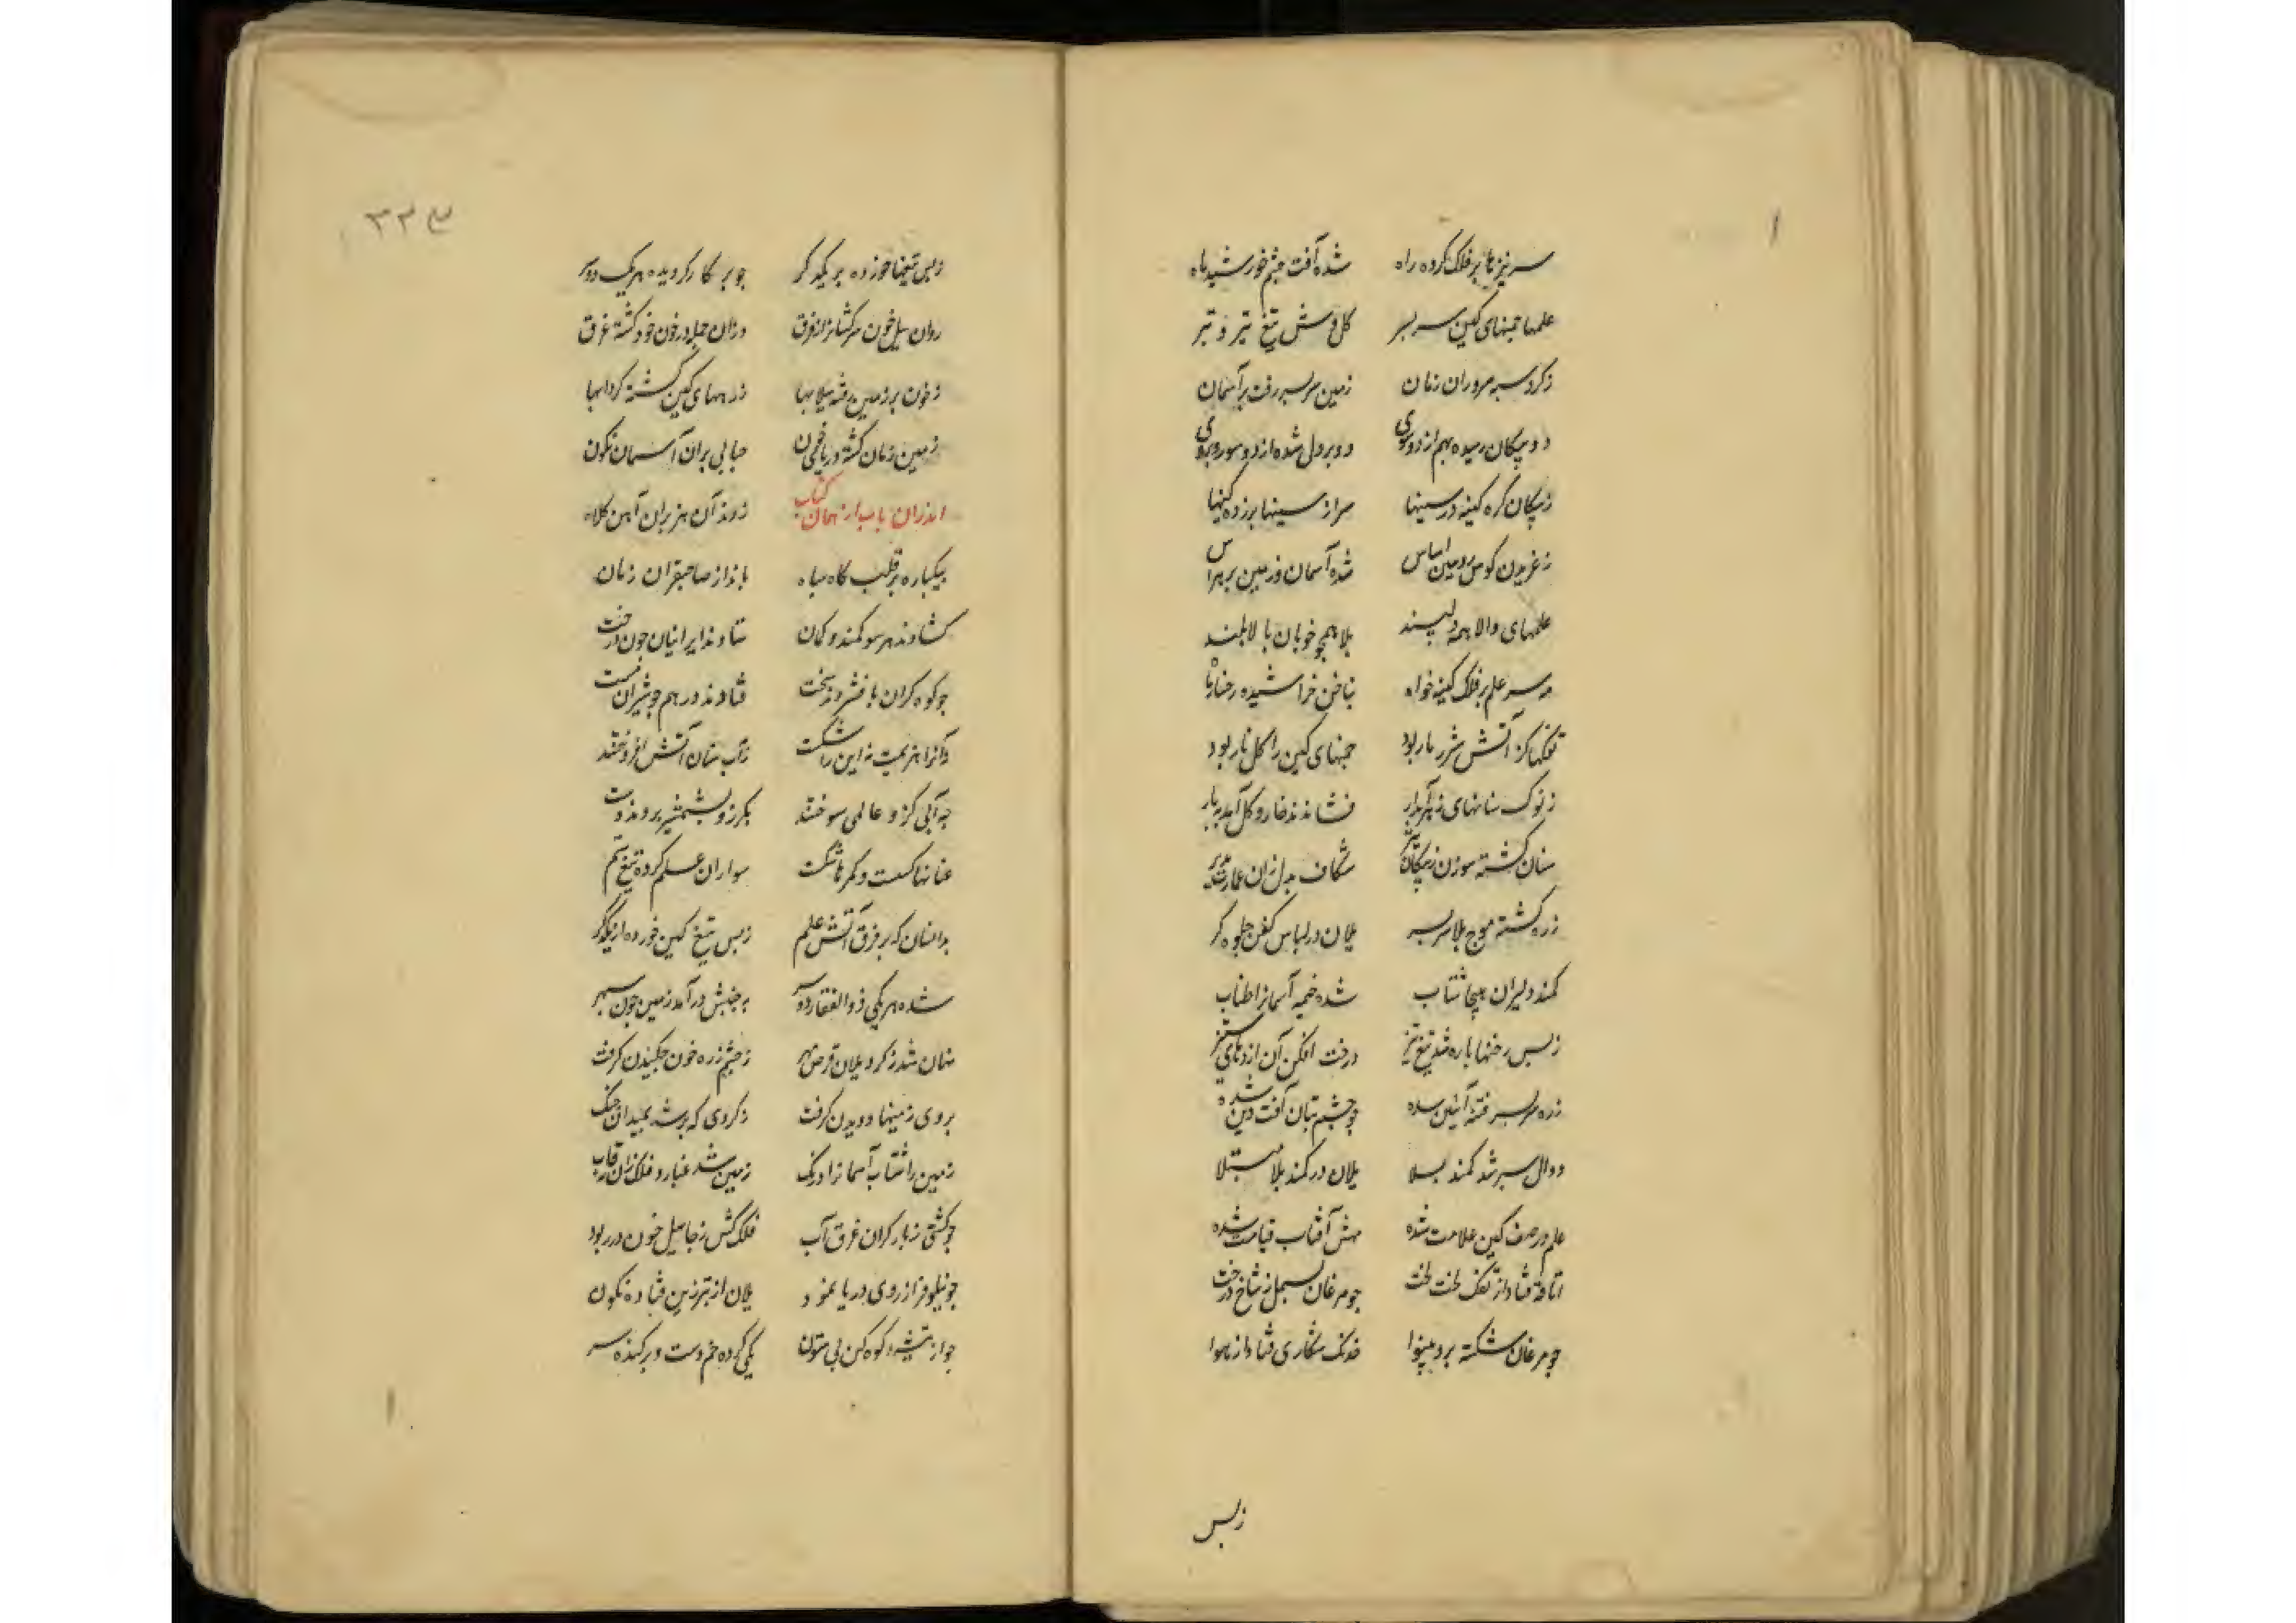 سر نیزها بر فلک کرده راه شده آفت چشم خورشید و ماه
علمها چمنهای کین سر بسر کل وسش تیغ و تیر و تبر
ز کرد سپه سروران زمان زمین سر بسر رفت بر آسمان
دو پیکان رسیده بهم از دو سوی دو بر دل شده از دو سو روبروی
ز پیکان کره کینه در سینها سر از سینها بر زده کینها
ز غریدن کوس رویین اساس شده آسمان و زمین پر هراس
علمهای والا همه دلپسند بلا همچو خوبان بالا بلند
مه سر علم بر فلک کینه خواه بناخن خراشیده رخسار ماه
تفکها کز آتش شرر بار بود چمنهای کین را کل نار بود
ز نوک سنانهای زهرآبدار فشاندند خار و کل آمد ببار
سنان کشته سوزن ز پیکان تیر شکاف دل زان
زره کشته موج بلا سر بسر یلان در لباس کفن جلوه کر
کمند دلیران هیجا شتاب شده خیمه آسمانرا طناب
ز بس رخنها باره شد تیغ تیز درخت افکن آن اژدهای ستیز
زره سر بسر فتنه آئین شده چو چشم بتان آفت دین شده
دوال سپر شد کمند بلا یلان در کمند بلا مبتلا
علم در صف کین علامت شده مهش آفتاب قیامت شده
اتاقه فتاد از تفک لخت لخت چو مرغان بسمل ز شاخ درخت
چو مرغان شکسته پر و بینوا خدنک شکاری فتاد از هوا
زبس
۳۲۴
ز بس تیغها خورده بر یکدکر چو پرکار کردیده هر یک دو سر
روان سیل خون سرکشانرا ز فرق وزان جمله در خون خود کشته غرق
ز خون بر زمین رفته سیلابها زرههای کین کشته کردابها
زمین زمان کشته دریای خون حبابی بران آسمان نکون
اندران باب از همان کتاب زدند آن هزبران آهن کلاه
بیکباره بر قلب کاه سپاه بانداز صاحبقران زمان
کشادند هر سو کمند و کمان ستادند ایرانیان چون درخت
چو کوه کران پا فشردند سخت فتادند در هم چو شیران مست
نه آنرا هزیمت نه این را شکست ز آب سنان آتش افروختند
چه آبی کزو عالمی سوختند بکرز و بشمشیر بردند دست
عنانها کسست و کمرها شکست سواران علم کرده تیغ ستم
بدانسان که بر فرق آتش علم ز بس تیغ کین خورده از یکدکر
شده هر یکی ذوالفقار دو سر به جنبش در آمد زمین چون سپهر
نهان شد ز کرد یلان قرص مهر ز چشم زره خون چکیدن کرفت
بروی زمینها دویدن کرفت ز کردی که بر شد بمیدان جنک
زمین را شتاب آسمانرا درنک زمین شد غبار و فلک زان
چو کشتی ز بار کران غرق آب فلک کش ز جا سیل خون در ربود
چو نیلوفر از روی دریا نمود یلان از تبرزین فتاده نکون
چو از تیشه کوه کن بی ستون یکی کرده خم دست و بر کنده سر